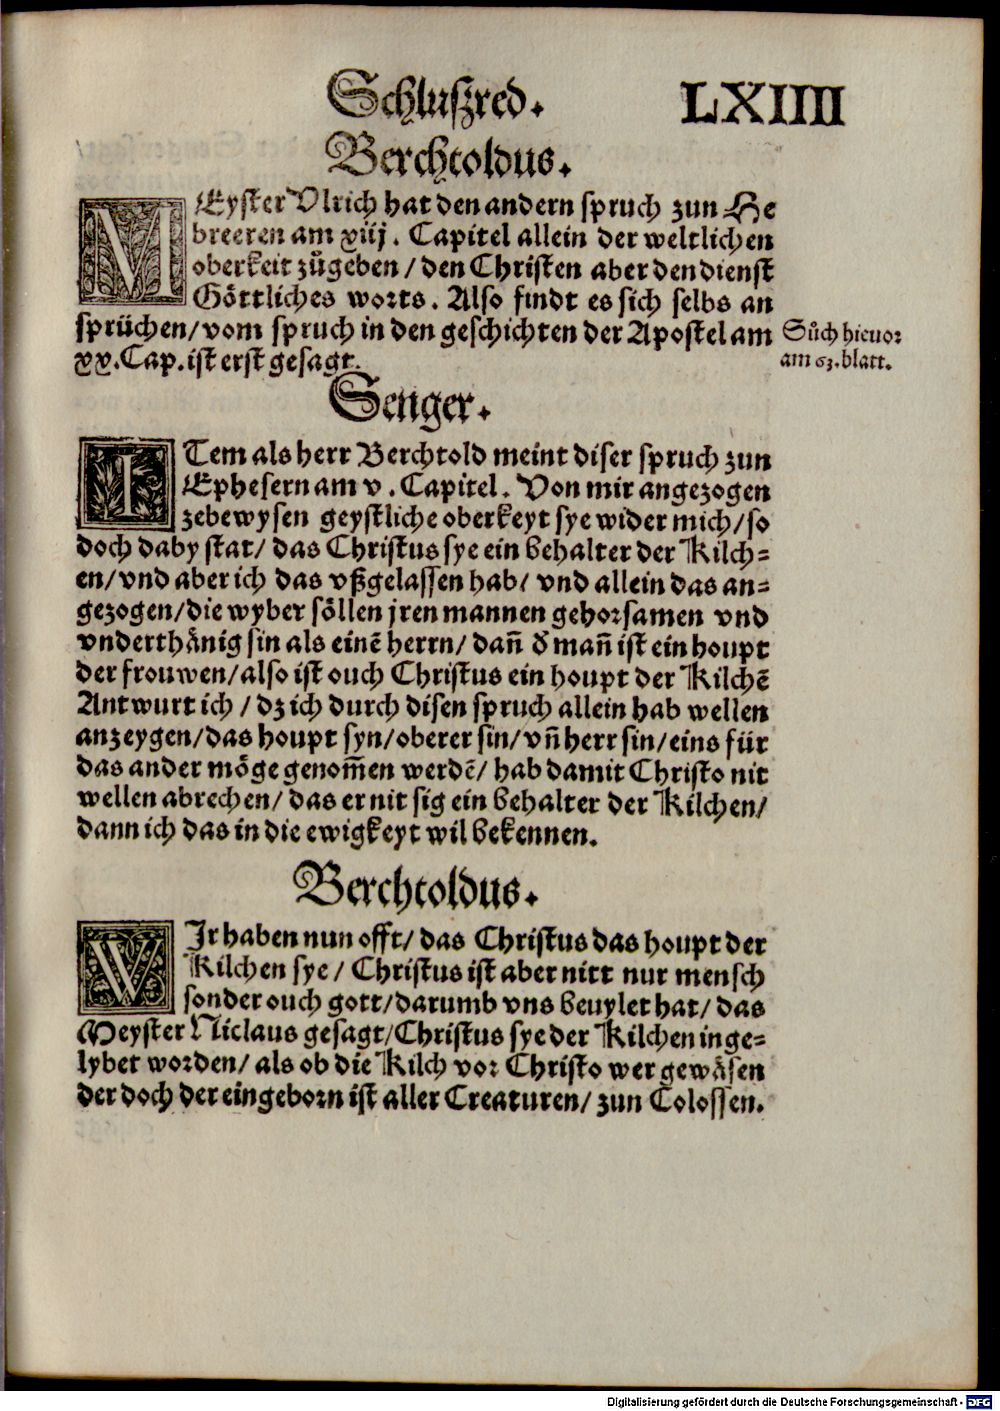 Schluſzred. LXIIII
Berchtoldus.
MEyster Vlrich hat den andern spruch zun He
breeren am xiij. Capitel allein der weltlichen
oberkeit zůgeben / den Christen aber den dienst
Göttliches worts. Also findt es sich selbs an
sprüchen / vom spruch in den geschichten der Apostel am
xx. Cap. ist erst gesagt.
Sůch hieuor
am 63. blatt.
Senger.
ITem als herr Berchtold meint diser spruch zun
Ephesern am v. Capitel. Von mir angezogen
zebewysen geystliche oberkeyt sye wider mich / so
doch daby stat / das Christus sye ein behalter der Kilch⸗
en / vnd aber ich das vßgelassen hab / vnd allein das an⸗
gezogen / die wyber söllen jren mannen gehorsamen vnd
vnderthänig sin als einē herrn / dañ d̕ mañ ist ein houpt
der frouwen / also ist ouch Christus ein houpt der Kilchē
Antwurt ich / dz ich durch disen spruch allein hab wellen
anzeygen / das houpt syn / oberer sin / vñ herr sin / eins für
das ander möge genom̄en werdē / hab damit Christo nit
wellen abrechen / das er nit sig ein behalter der Kilchen /
dann ich das in die ewigkeyt wil bekennen.
Berchtoldus.
WJr haben nun offt / das Christus das houpt der
Kilchen sye / Christus ist aber nitt nur mensch
sonder ouch gott / darumb vns beuylet hat / das
Meyster Niclaus gesagt / Christus sye der Kilchen inge⸗
lybet worden / als ob die Kilch vor Christo wer gewäsen
der doch der eingeborn ist aller Creaturen / zun Colossen.
Digitalisierung gefördert durch die Deutsche Forschungsgemeinschaft - DFG